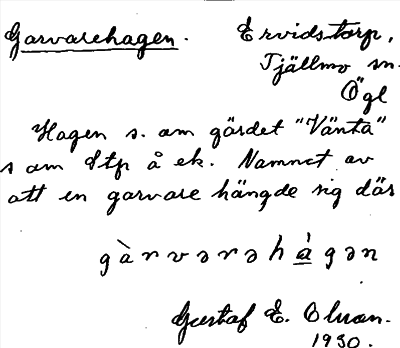 Garvarehagen. Ervidstorp,
Tjällmo sn.
Ögl
Hagen s. om gärdet "Vänta"
s om Stp å ek. Namnet av
att en garvare hängde sig där
gàrvərəhágən
Gustaf E. Olsson.
1930.